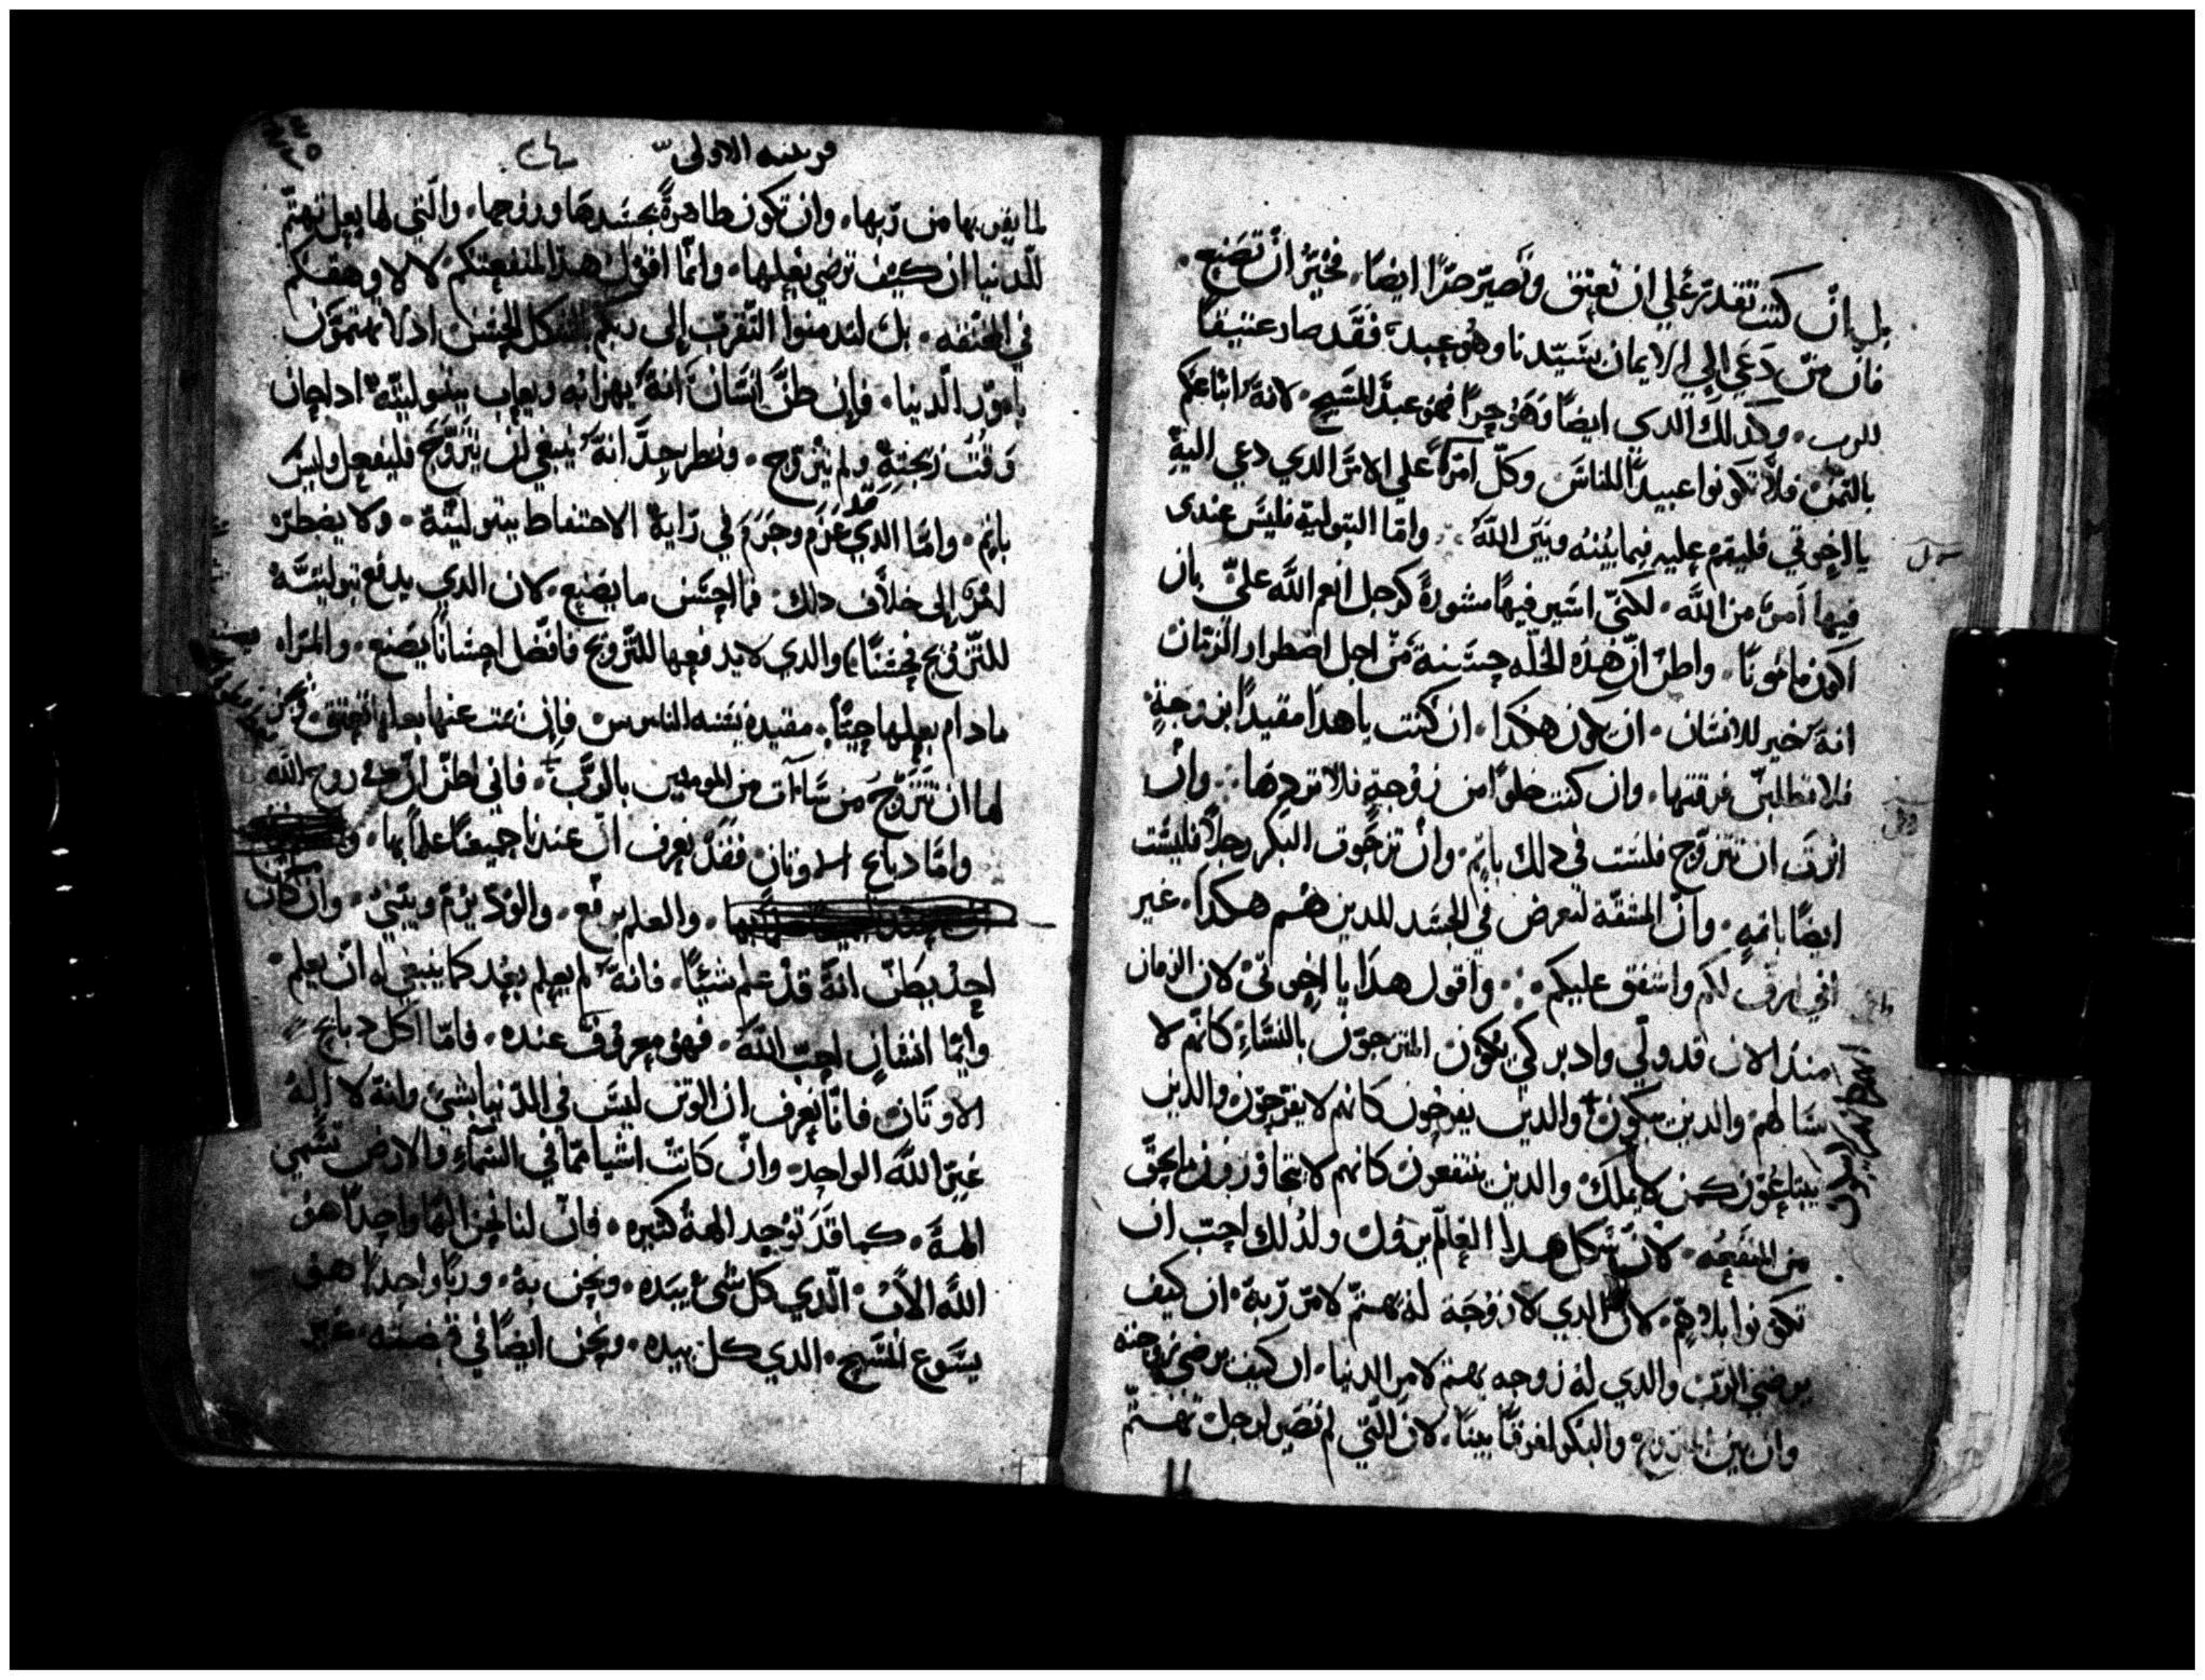 بل ان كنت تقدر علي ان تعتق وتصير حرًا ايضًا، فخير ان تصنع.
فان من دعي الي الايمان بسيدنا وهو عبد، فقد صار عتيقًا
للرب، وكذلك الدي ايضًا وهو حرًا فهو عبد للمسيح، لانه ابتاعكم
بالتمن، فلا تكونوا عبيدًا للناس وكل امرء علي الامر الدي دعي اليه
يا اخوتي فليقم عليه فيما بينه وبين الله، واما البتولية فليس عندى
فيها امر من الله، لكني اشير فيها مشورة كرجل انعم الله علي بان
اكون مامونًا، واطن ان هده الخله حسنة من اجل اضطرار الزمان
انه خير للانسان، ان يكون هكدا، ان كنت يا هدا مقيدًا بزوجةٍ
فلا تطلبن فرقتها، وان كنت خلوًا من زوجةٍ فلا تردها، وان
انت ان تتزوج فلست في دلك باتم، وان تزوجت البكر رجلًا فليست
ايضًا باتمه، وان المشقة لتعرض في الجسد للدين هم هكدا، غير
اني ارق لكم واشفق عليكم، واقول هدا يا اخوتي لان الزمان
مند الان قد ولي وادبر كي يكون المتزوجون بالنساء كانهم لا
نسا لهم والدين يبكون والدين يفرحون كانهم لا يفرحون والدين
يبتاعون كمن لا يملك والدين ينتفعون كانهم لا يتجاوزون ما يحق
من المنفعه، لان شكل هدا العالم يزول ولدلك احب ان
تكونوا بلا هم، لان الدي لا زوجة له يهتم لامر ربه، ان كيف
يرضي الرب والدي له زوجه يهتم لامر الدنيا، ان كيف يرضي زوجته
وان بين المتزوجة والبكر لفرقًا بينًا، لان التي لم تصير لرجل تهتم
الاولى
لما يقربها من ربها، وان تكون طاهرةً بجسدها وروحها، والتي لها بعل تهتم
للدنيا ان كيف ترضي بعلها، وانما اقول هدا لمنفعتكم لا لاوهقكم
في المخنقه، بل لتدمنوا التقرب إلى ربكم بالشكل الحسن اد لا تهتمون
بامور الدنيا، فإن ظن انسان انه يهزا به ويعاب ببتوليته ادا حان
وقت زيجته ولم يتزوج، ونظر بجد انه ينبغي ان يتزوج فليفعل وليس
باتم، واما الدي عزم وجزم في راية الاحتفاظ ببتوليته، ولا يضطره
امر إلى خلاف دلك، فما احسن ما يصنع، لان الدي يدفع بتوليته
للتزويج فحسنًا والدي لا يدفعها للتزويج فافضل احسانًا يصنع، والمراه
مادام بعلها حيًا، مقيده بسنه الناموس، فإن مت عنها بعلها تعتق
لها ان تتزوج من شاءت من المومنين بالرب، فاني اظن ان في روح الله
واما دبايح الاوتان فقد نعرف ان عندنا جميعنا علمًا بها،
والعلم يرفع، والود يرم ويبني، وان كان
احد يظن انه قد علم شيئًا، فانه لم يعلم بعد كما ينبغي له ان يعلم،
وايما انسان احب الله، فهو معروف عنده، فاما اكل دبايح
الاوتان فانا نعرف ان الوتن ليس في الدنيا بشئ وانه لا اله
غير الله الواحد، وان كانت اشيا مما في السماء والارض تسمى
الهة، كما قد توجد الهة كتيره، فان لنا نحن الهًا واحدًا هو
الله الاب، الدي كل شئ بيده، ونحن به، وربًا واحدًا هو
يسوع المسيح، الدي كل بيده، ونحن ايضًا في قبضته، غير